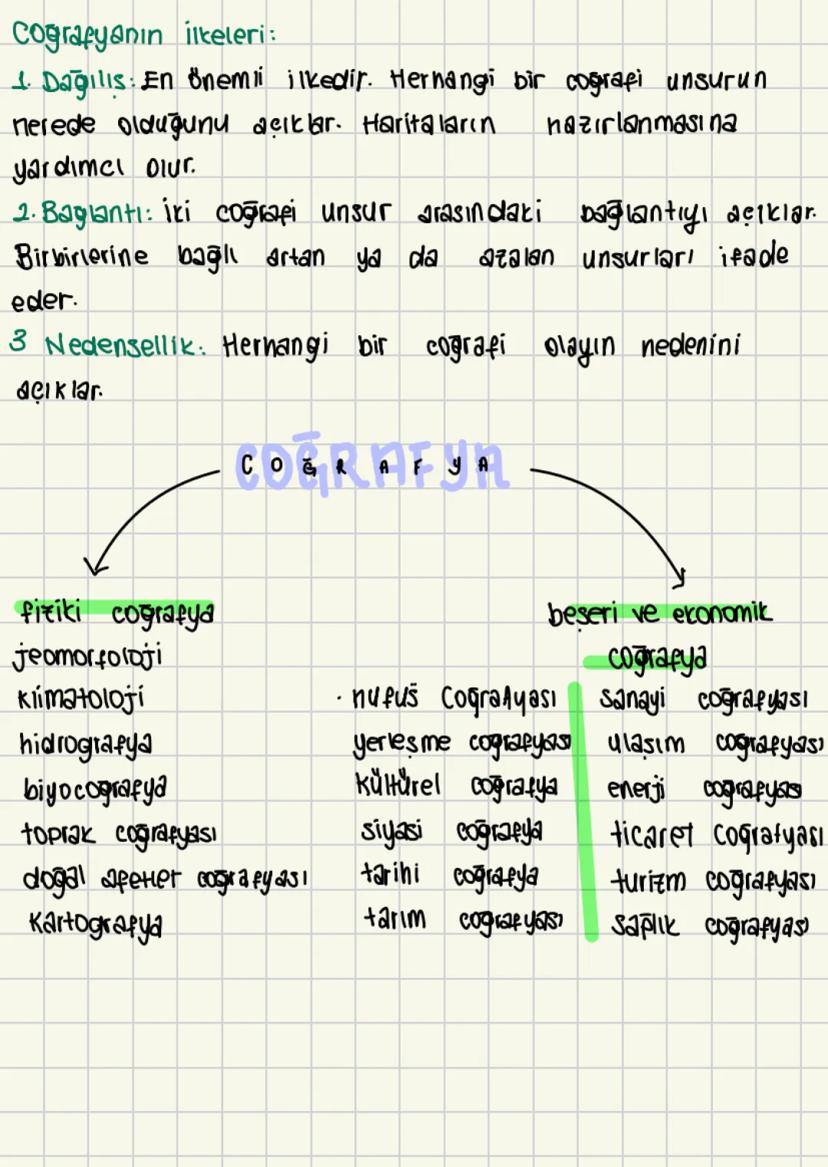 Coğrafyanın ilkeleri:
1. Dağılış: En önemli ilkedir. Herhangi bir coğrafi unsurun
nerede olduğunu açıklar. Haritaların hazırlanmasına
yardımcı olur.
2. Bağlantı: iki coğrafi unsur arasındaki bağlantıyı açıklar.
Birbirlerine bağlı artan ya da azalan unsurları ifade
eder.
3 Nedensellik: Herhangi bir coğrafi olayın nedenini
açıklar.
COĞRAFYA
fiziki coğrafya
jeomorfoloji
klimatoloji
hidrografya
biyocoğrafya
toprak coğrafyası
doğal afetler coğrafyası
Kartografya
beşeri ve ekonomik
coğrafya
· nüfus Coğrafyası
yerleşme coğrafyası
kültürel coğrafya
siyasi coğrafya
tarihi coğrafya
tarım coğrafyası
sanayi coğrafyası
ulaşım coğrafyası
enerji coğrafyası
ticaret coğrafyası
turizm coğrafyası
sağlık coğrafyası